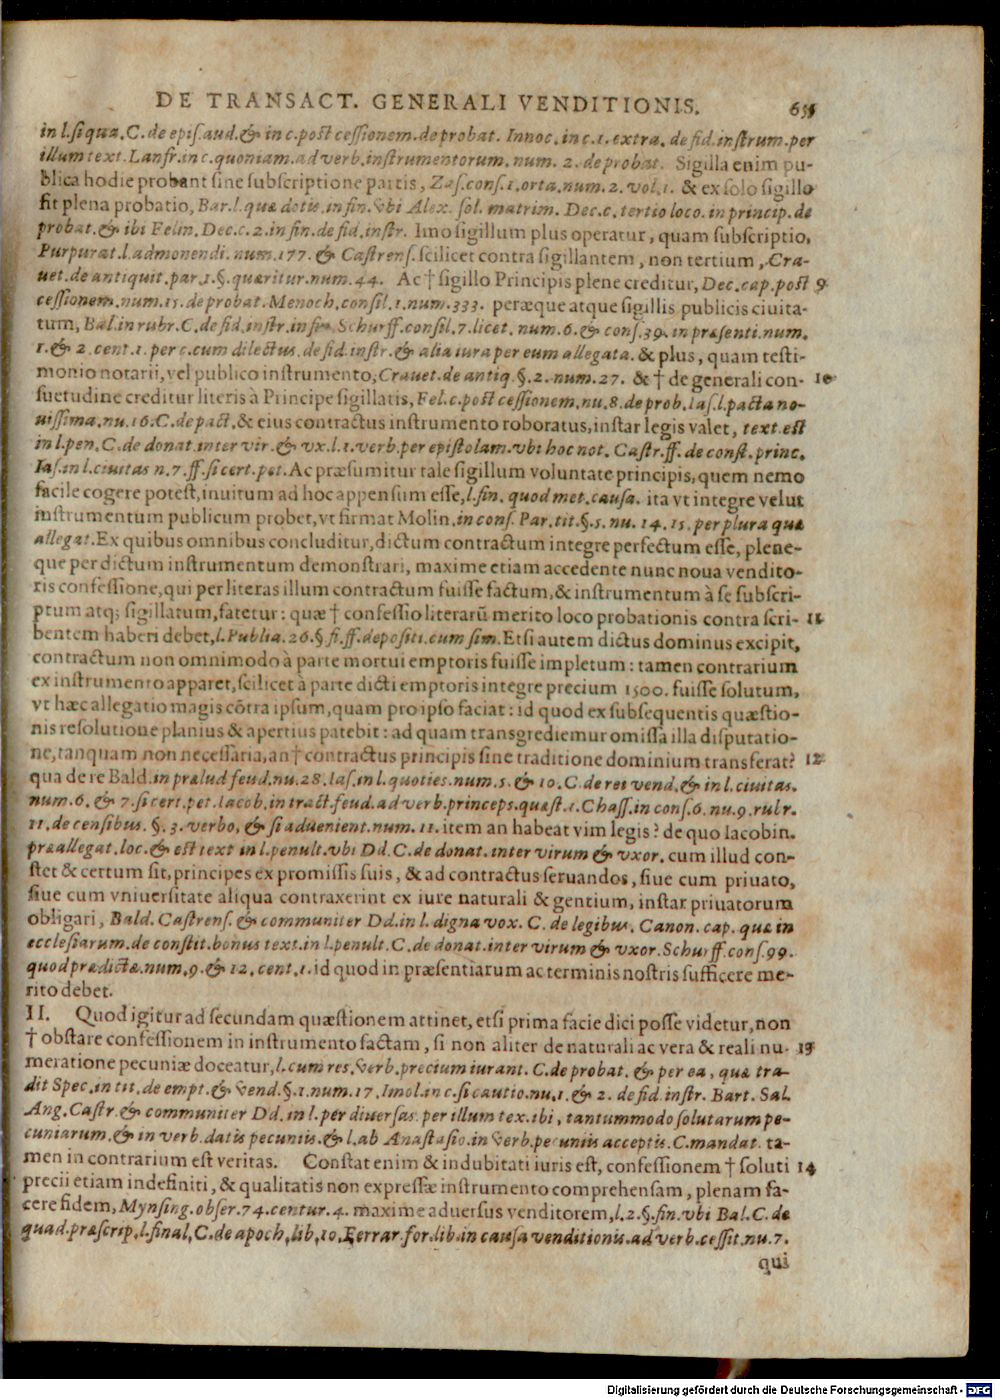 DE TRANSACT. GENERALI VENDITIONIS. 655
in l. si qua. C. de epis. aud. & in c. post cessionem. de probat. Innoc. in c. 1. extra. de fid. instrum. per
illum text. Lanfr. in c. quoniam. ad verb. instrumentorum. num. 2. de probat. Sigilla enim pu-
blica hodie probant sine subscriptione partis, Zas. cons. 1. orta. num. 2. vol. 1. & ex solo sigillo
fit plena probatio, Bar. l. quæ dotis. in fin. vbi Alex. sol. matrim. Dec. c. tertio loco. in princip. de
probat. & ibi Felin. Dec. c. 2. in fin. de fid. instr. Imo sigillum plus operatur, quam subscriptio,
Purpurat. l. admonendi. num. 177. & Castrens. scilicet contra sigillantem, non tertium, Cra-
uet. de antiquit. par. 1. §. quæritur. num. 44. Ac † sigillo Principis plene creditur, Dec. cap. post 9
cessionem. num. 15. de probat. Menoch. consil. 1. num. 333. peræque atque sigillis publicis ciuita-
tum, Bal. in rubr. C. de fid. instr. in fin. Schurff. consil. 7. licet. num. 6. & cons. 39. in præsenti. num.
1. & 2. cent. 1. per c. cum dilectus. de fid. instr. & alia iura per eum allegata. & plus, quam testi-
monio notarii, vel publico instrumento, Crauet. de antiq. §. 2. num. 27. & † de generali con- 10
suetudine creditur literis à Principe sigillatis, Fel. c. post cessionem, nu. 8. de prob. Ias. l. pacta no-
uissima. nu. 16. C. de pact. & eius contractus instrumento roboratus, instar legis valet, text. est
in l. pen. C. de donat. inter vir. & vx. l. 1. verb. per epistolam. vbi hoc not. Castr. ff. de const. princ.
Ias. in l. ciuitas n. 7. ff. si cert. pet. Ac præsumitur tale sigillum voluntate principis, quem nemo
facile cogere potest, inuitum ad hoc appensum esse, l. fin. quod met. causa. ita vt integre velut
instrumentum publicum probet, vt firmat Molin. in cons. Par. tit. §. 5. nu. 14. 15. per plura quæ
allegat. Ex quibus omnibus concluditur, dictum contractum integre perfectum esse, plene-
que per dictum instrumentum demonstrari, maxime etiam accedente nunc noua vendito-
ris confessione, qui per literas illum contractum fuisse factum, & instrumentum à se subscri-
ptum atq; sigillatum, fatetur: quæ † confessio literarū merito loco probationis contra scri- 11
bentem haberi debet, l. Publia. 26. § fi. ff. depositi. cum sim. Etsi autem dictus dominus excipit,
contractum non omnimodo à parte mortui emptoris fuisse impletum: tamen contrarium
ex instrumento apparet, scilicet à parte dicti emptoris integre precium 1500. fuisse solutum,
vt hæc allegatio magis cōtra ipsum, quam pro ipso faciat: id quod ex subsequentis quæstio-
nis resolutione planius & apertius patebit: ad quam transgrediemur omissa illa disputatio-
ne, tanquam non necessaria, an † contractus principis sine traditione dominium transferat? 12
qua de re Bald. in prælud feud. nu. 28. Ias. in l. quoties. num. 5. & 10. C. de rei vend. & in l. ciuitas.
num. 6. & 7. si cert. pet. Iacob. in tract. feud. ad verb. princeps. quæst. 1. Chass. in cons. 6. nu. 9. rulr.
11. de censibus. §. 3. verbo, & si aduenient. num. 11. item an habeat vim legis? de quo Iacobin.
præallegat. loc. & est text in l. penult. vbi Dd. C. de donat. inter virum & vxor. cum illud con-
stet & certum sit, principes ex promissis suis, & ad contractus seruandos, siue cum priuato,
siue cum vniuersitate aliqua contraxerint ex iure naturali & gentium, instar priuatorum
obligari, Bald. Castrens. & communiter Dd. in l. digna vox. C. de legibus. Canon. cap. quæ in
ecclesiarum. de constit. bonus text. in l. penult. C. de donat. inter virum & vxor. Schurff. cons. 99.
quod prædictæ. num. 9. & 12. cent. 1. id quod in præsentiarum ac terminis nostris sufficere me-
rito debet.
II. Quod igitur ad secundam quæstionem attinet, etsi prima facie dici posse videtur, non
† obstare confessionem in instrumento factam, si non aliter de naturali ac vera & reali nu- 13
meratione pecuniæ doceatur, l. cum res. verb. precium iurant. C. de probat. & per ea, quæ tra-
dit Spec. in tit. de empt. & vend. §. 1. num. 17. Imol. in c. si cautio. nu. 1. & 2. de fid. instr. Bart. Sal.
Ang. Castr. & communiter Dd. in l. per diuersas. per illum tex. ibi, tantummodo solutarum pe-
cuniarum. & in verb. datis pecuniis. & l. ab Anastasio. in verb. pecuniis acceptis. C. mandat. ta-
men in contrarium est veritas. Constat enim & indubitati iuris est, confessionem † soluti 14
precii etiam indefiniti, & qualitatis non expressæ instrumento comprehensam, plenam fa-
cere fidem, Mynsing. obser. 74. centur. 4. maxime aduersus venditorem, l. 2. §. fin. vbi Bal. C. de
quad. præscrip. l. final, C. de apoch. lib. 10. Ferrar. for. lib. in causa venditionis. ad verb. cessit. nu. 7.
qui
Digitalisierung gefördert durch die Deutsche Forschungsgemeinschaft - DFG